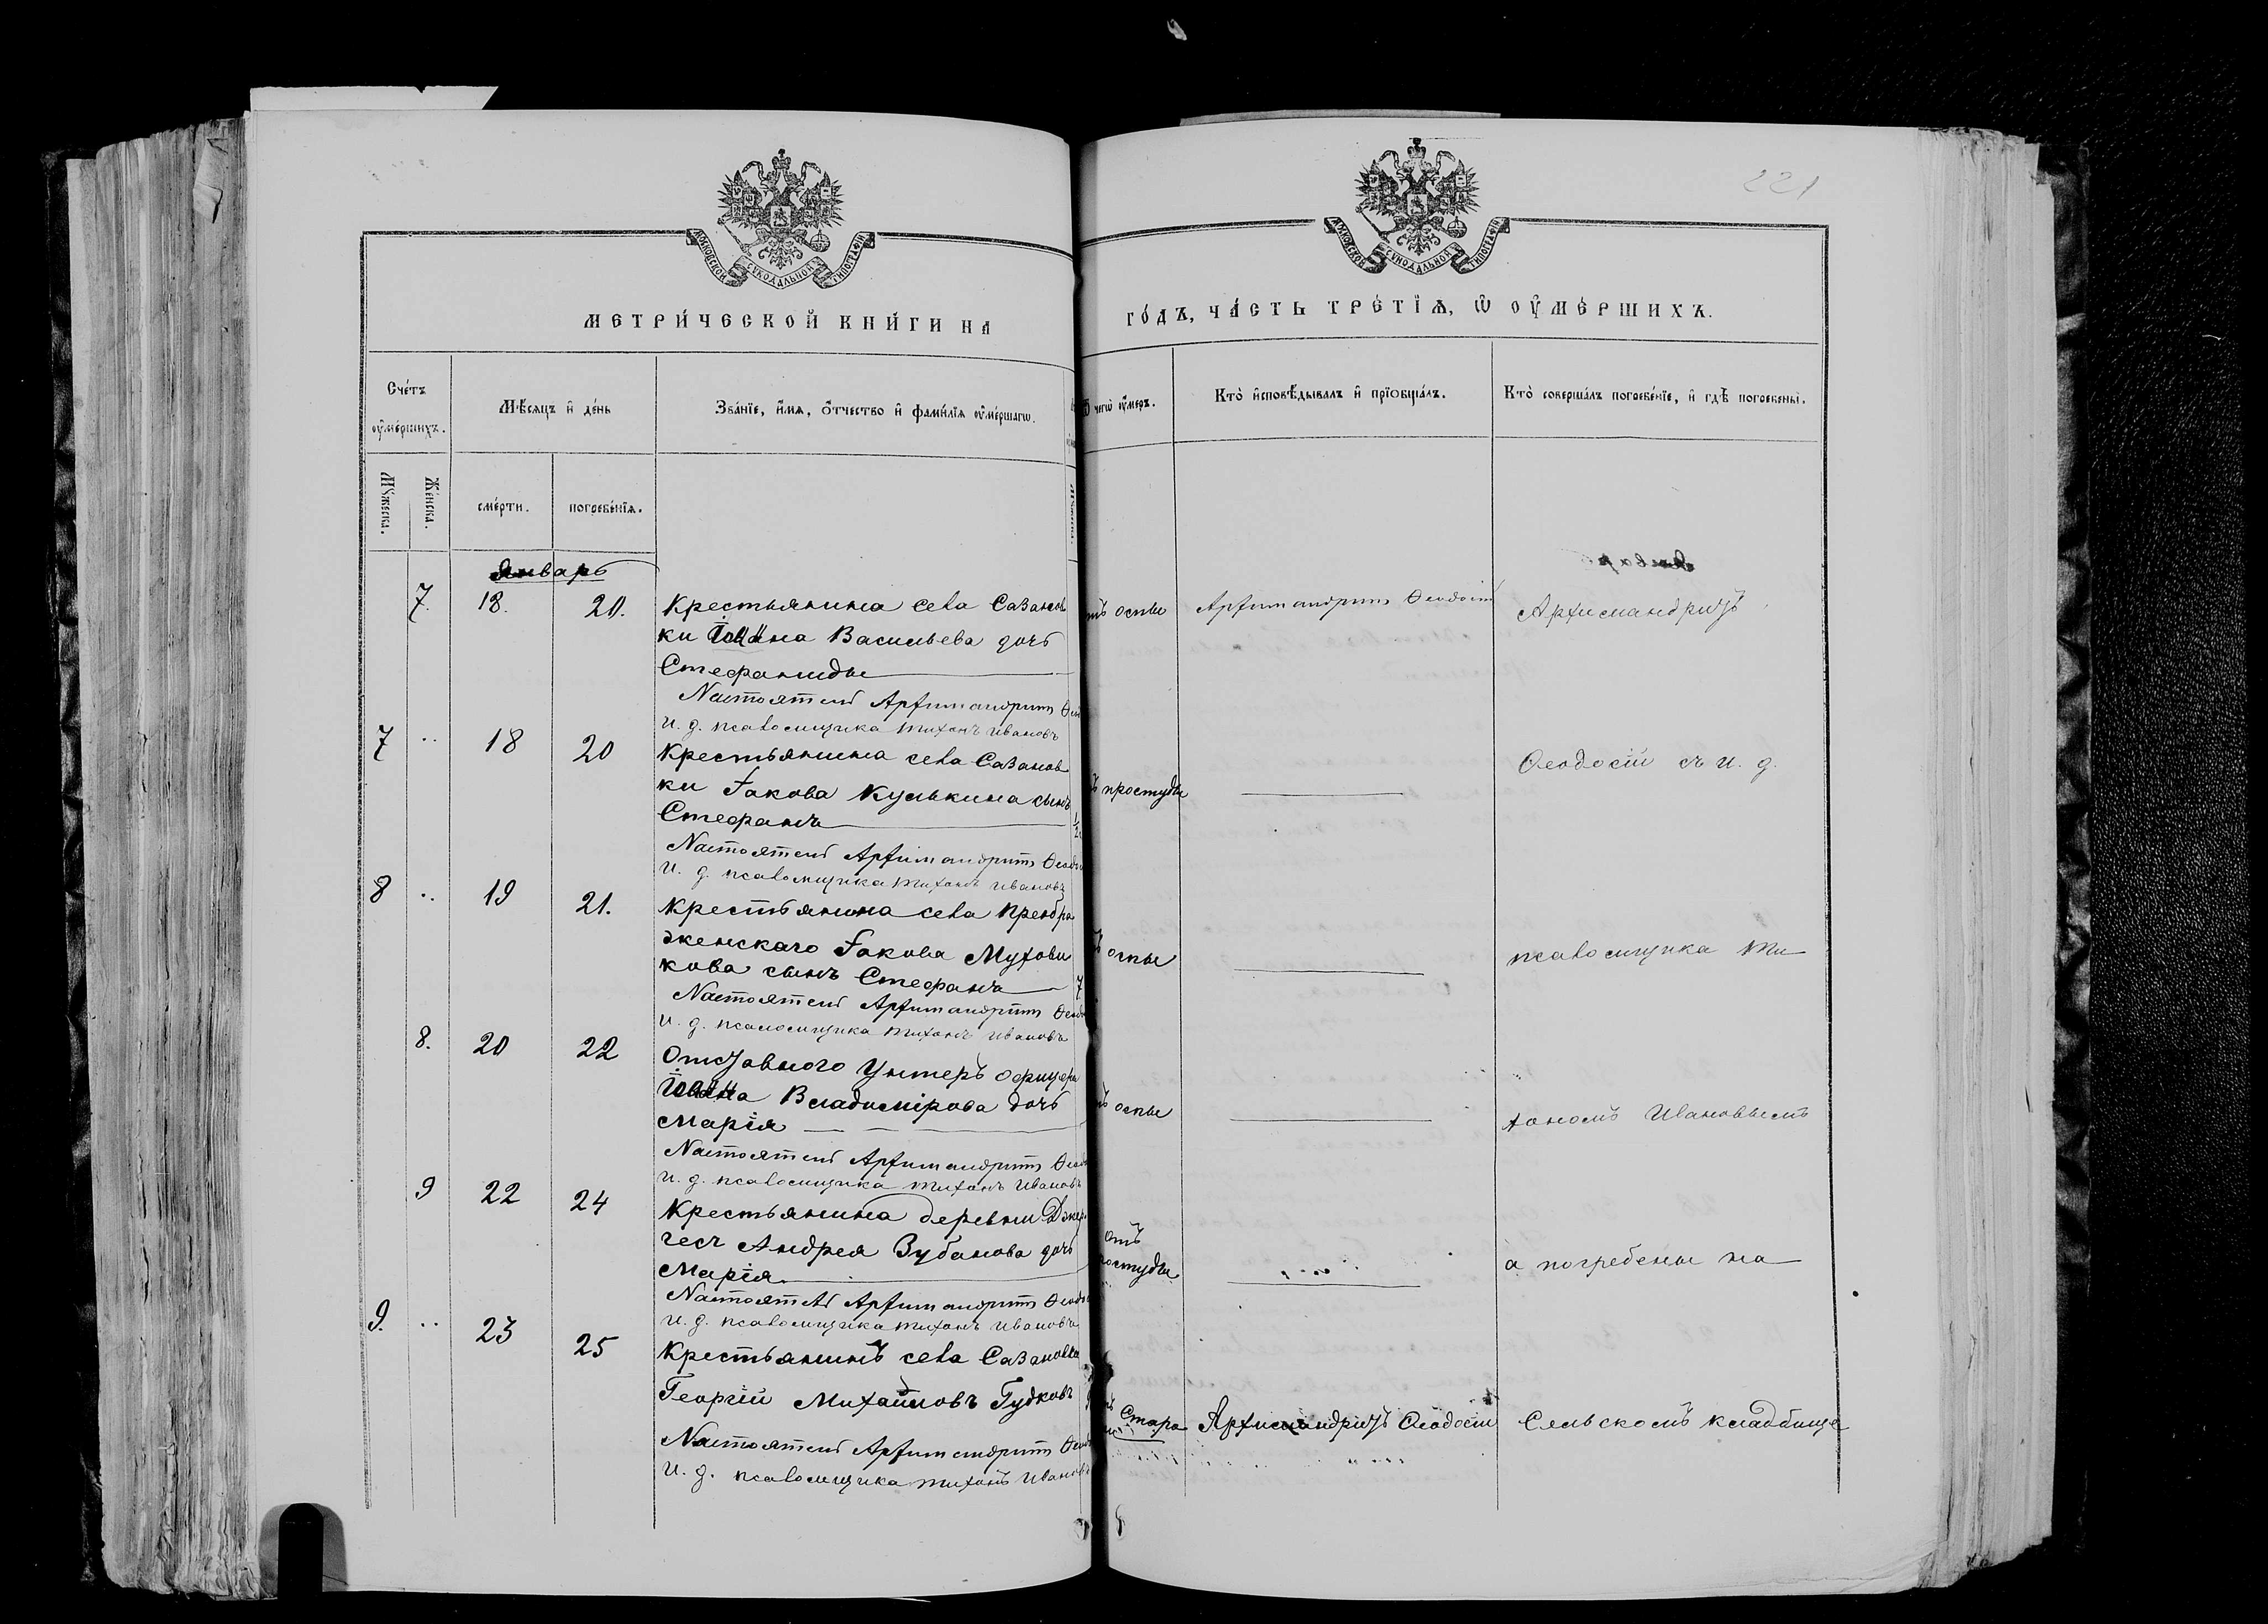 221
МОСКОВСКОЙ СѴНОДАЛЬНОЙ ТИПОГРАФІИ
МОСКОВСКОЙ СѴНОДАЛЬНОЙ ТИПОГРАФІИ
МЕТРИ́ЧЕСКОЙ КНИ́ГИ НА
ГО́ДЪ, ЧА́СТЬ ТРЕ́ТЇѦ, Ѿ ОУ҆МЕ́РШИХЪ.
Сче́тъ оу҆ме́ршихъ.
Мѣ́сяцъ и҆ де́нь
Зва́нїе, и҆́мѧ, о҆́тчество и҆ фами́лїѧ оу҆ме́ршагѡ.
Ѿ чегѡ̀ оу҆́меръ.
Кто̀ и҆сповѣ́дывалъ и҆ прїѡбща́лъ.
Кто̀ соверша́лъ погребе́нїе, и҆ гдѣ̀ погребены̀.
Мꙋ́жеска.
Же́нска.
сме́рти.
погребе́нїѧ.
Январь
7. 18. 20. Крестьянина села Сазанов
ки Іоанна Васильева дочь
Стефанида
оспы
Архимандритъ Ѳеодосій
Архимандритъ
Настоятель Архимандритъ
И. д. псаломщика Тихонъ Ивановъ
7 .. 18 20 Крестьянина села Сазанов
ки Іакова Кулькина сынъ
Стефанъ
простуды
Ѳеодосій съ и. д.
Настоятель Архимандритъ
И. д. псаломщика Тихонъ Ивановъ
8 .. 19 21. Крестьянина села Преобра
женскаго Іакова Мухови
кова сынъ Стефанъ 7
оспы
псаломщика Ти
Настоятель Архимандритъ
И. д. псаломщика Тихонъ Ивановъ
8. 20 22 Отставного Унтеръ офицера
Іоанна Владимірова дочь
Марія
оспы
хономъ Ивановымъ
Настоятель Архимандритъ
И. д. псаломщика Тихонъ Ивановъ
9 22 24 Крестьянина деревни
Андрея Зубанова дочь
Марія
отъ
простуды
а погребены на
Настоятель Архимандритъ
И. д. псаломщика Тихонъ Ивановъ
9. .. 23 25 Крестьянинъ села Сазановки
Георгій Михайловъ Гудковъ
Стара
Архимандритъ Ѳеодосій
Сельскомъ кладбище
Настоятель Архимандритъ
И. д. псаломщика Тихонъ Ивановъ